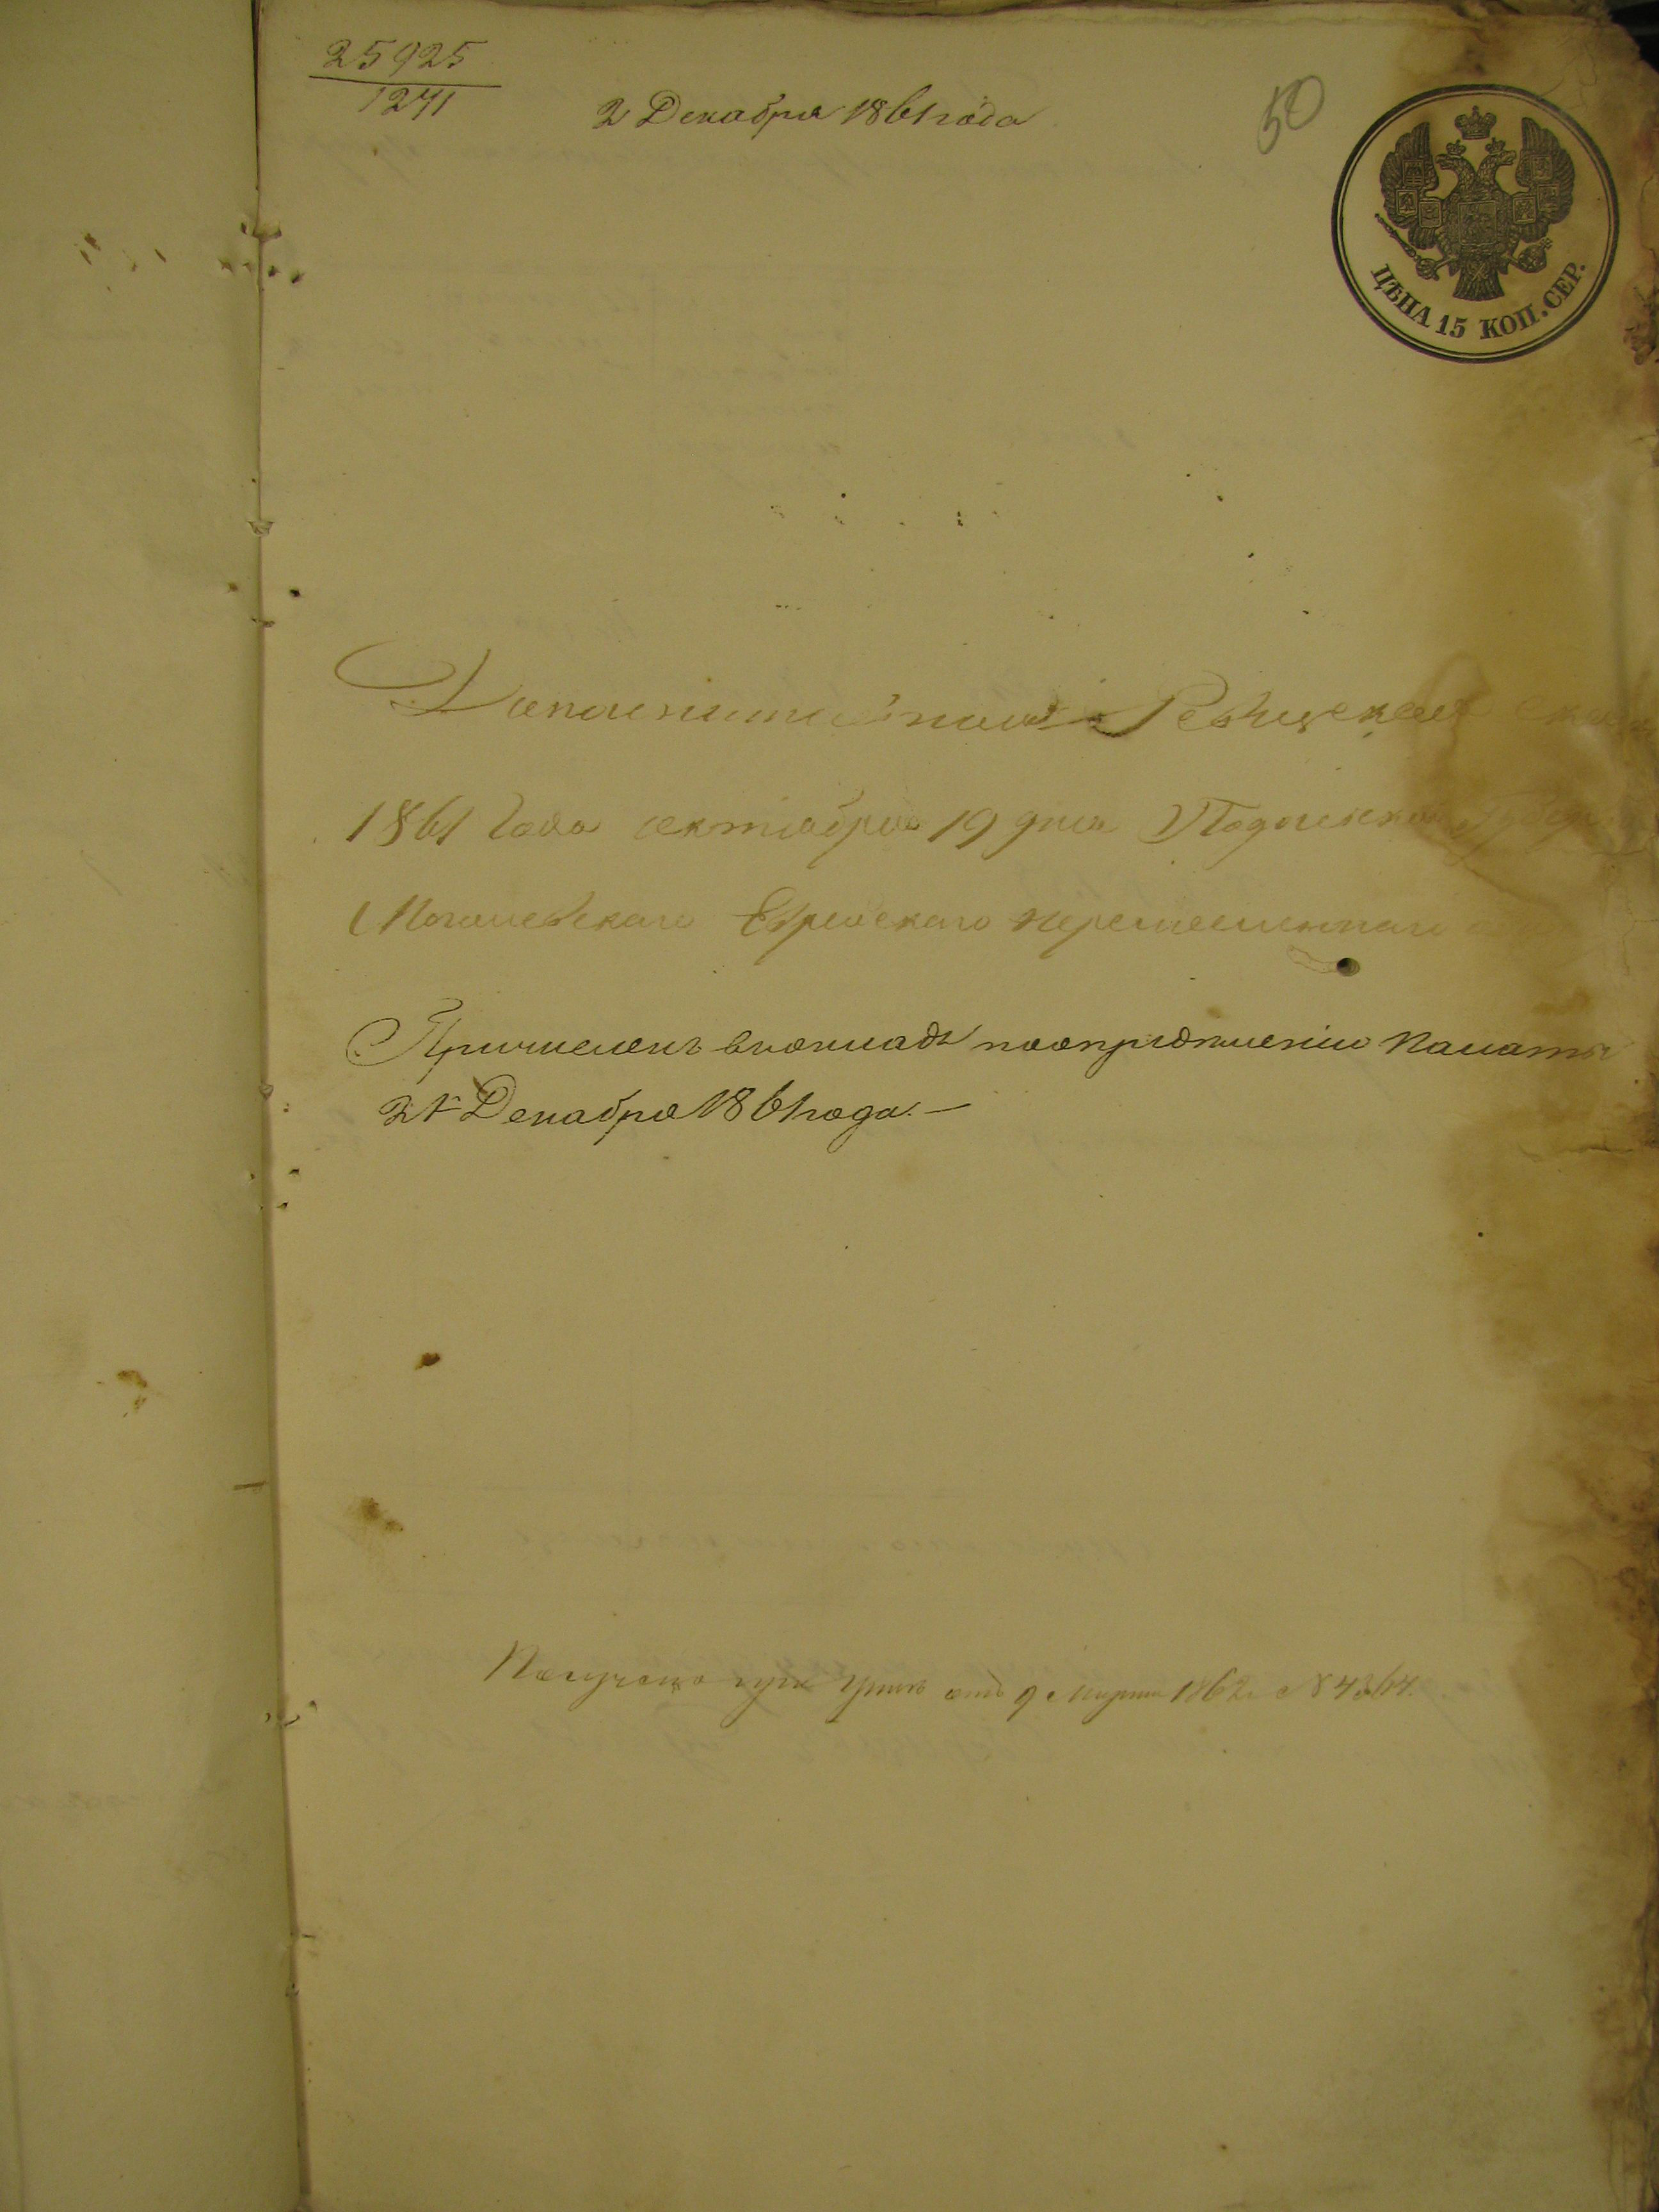 25925
1271
2 Декабря 1861 года
50
ЦѢНА 15 КОП. СЕР.
Дополнительная Ревизская
1861 Года октября 19 дня Подольской Губер
Могилевскаго Еврейскаго
Причислены в окладъ по опредѣленію Палаты
21 Декабря 1861 года. —
Получено от 9 Марта 1862 №